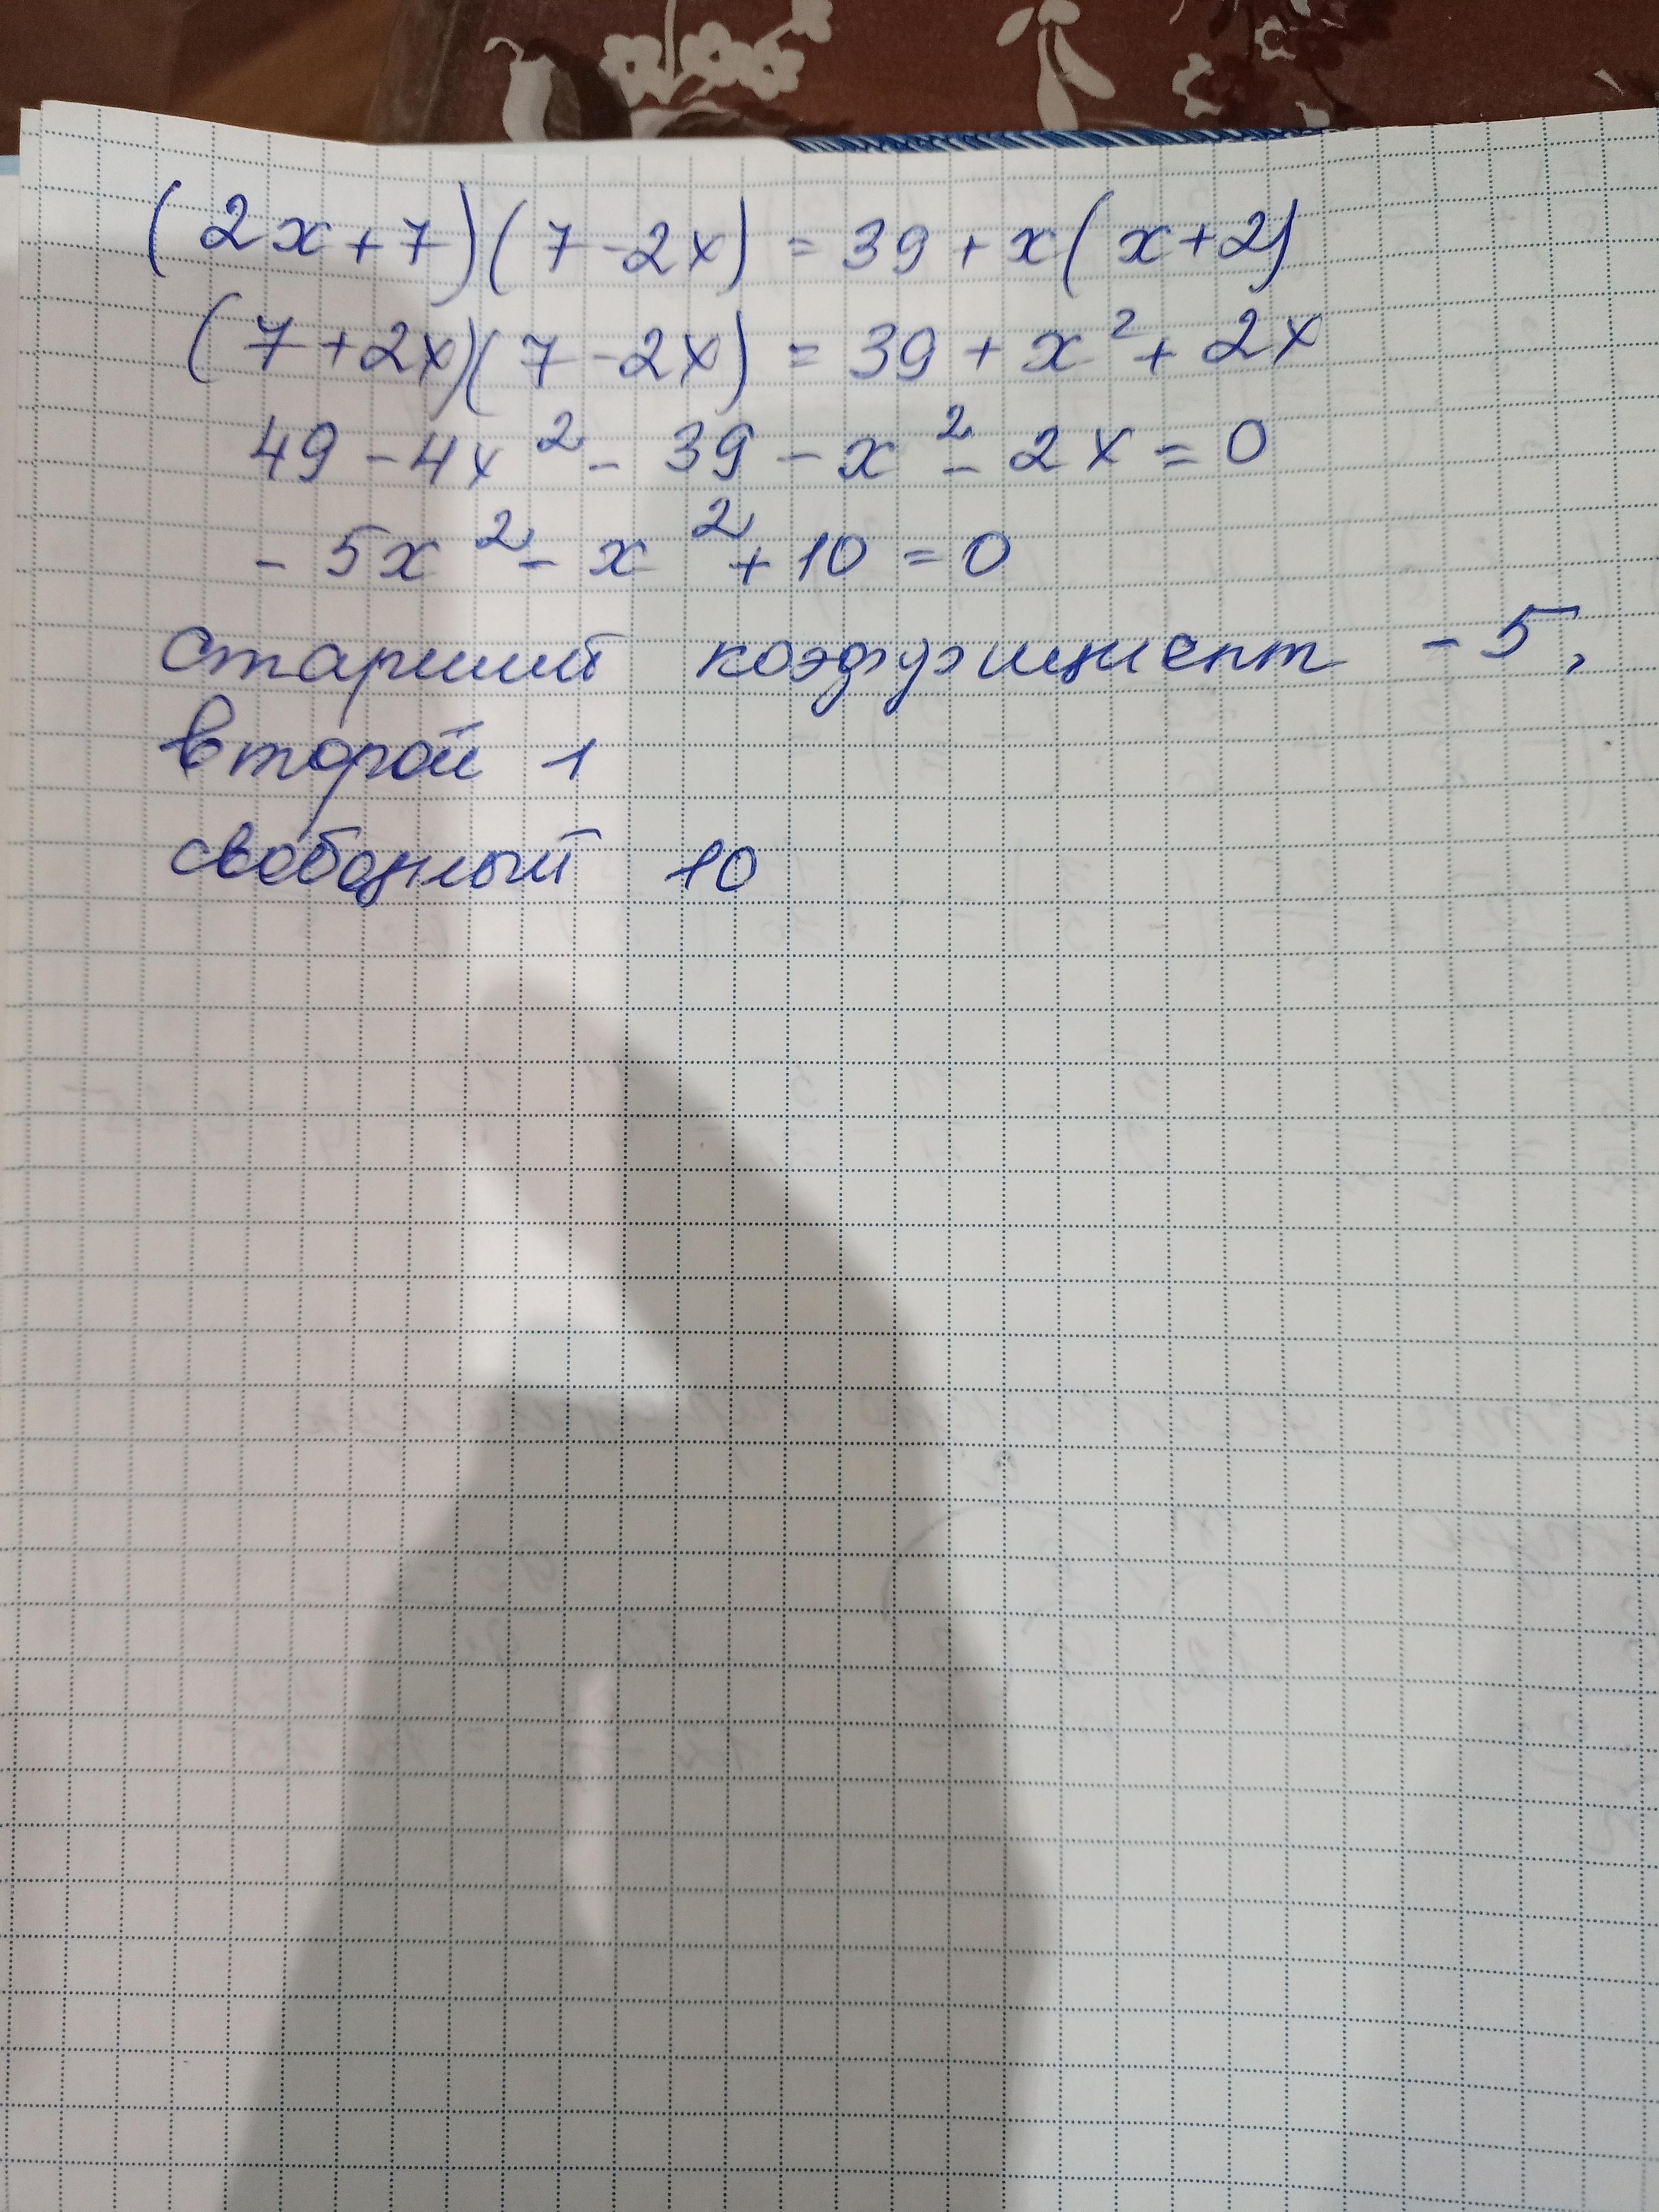 (2x+7)(7-2x) = 39 + x(x+2)
(7+2x)(7-2x) = 39 + x² + 2x
49 - 4x² - 39 - x² - 2x = 0
- 5x² - x² + 10 = 0
старший коэффициент - 5,
второй 1
свободный 10